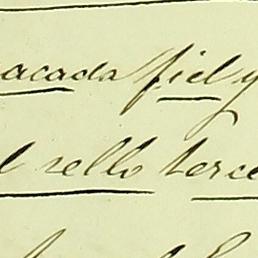 acada fiel y
l sello terce